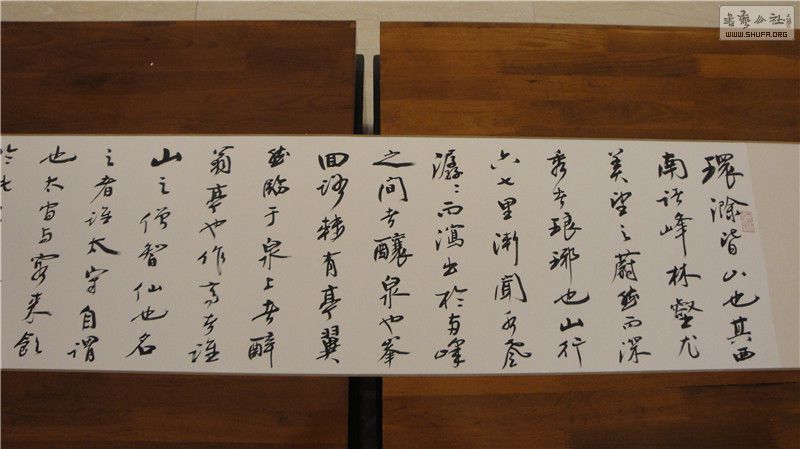 環滁皆山也其西
南諸峰林壑尤
美望之蔚然而深
秀者琅琊也山行
六七里漸聞水聲
潺〻而瀉出於两峰
之間者釀泉也峯
回路轉有亭翼
然臨于泉上者醉
翁亭也作亭者誰
山之僧智仙也名
之者誰太守自謂
也太守与客来飲
於此
書藝公社
WWW.SHUFA.ORG